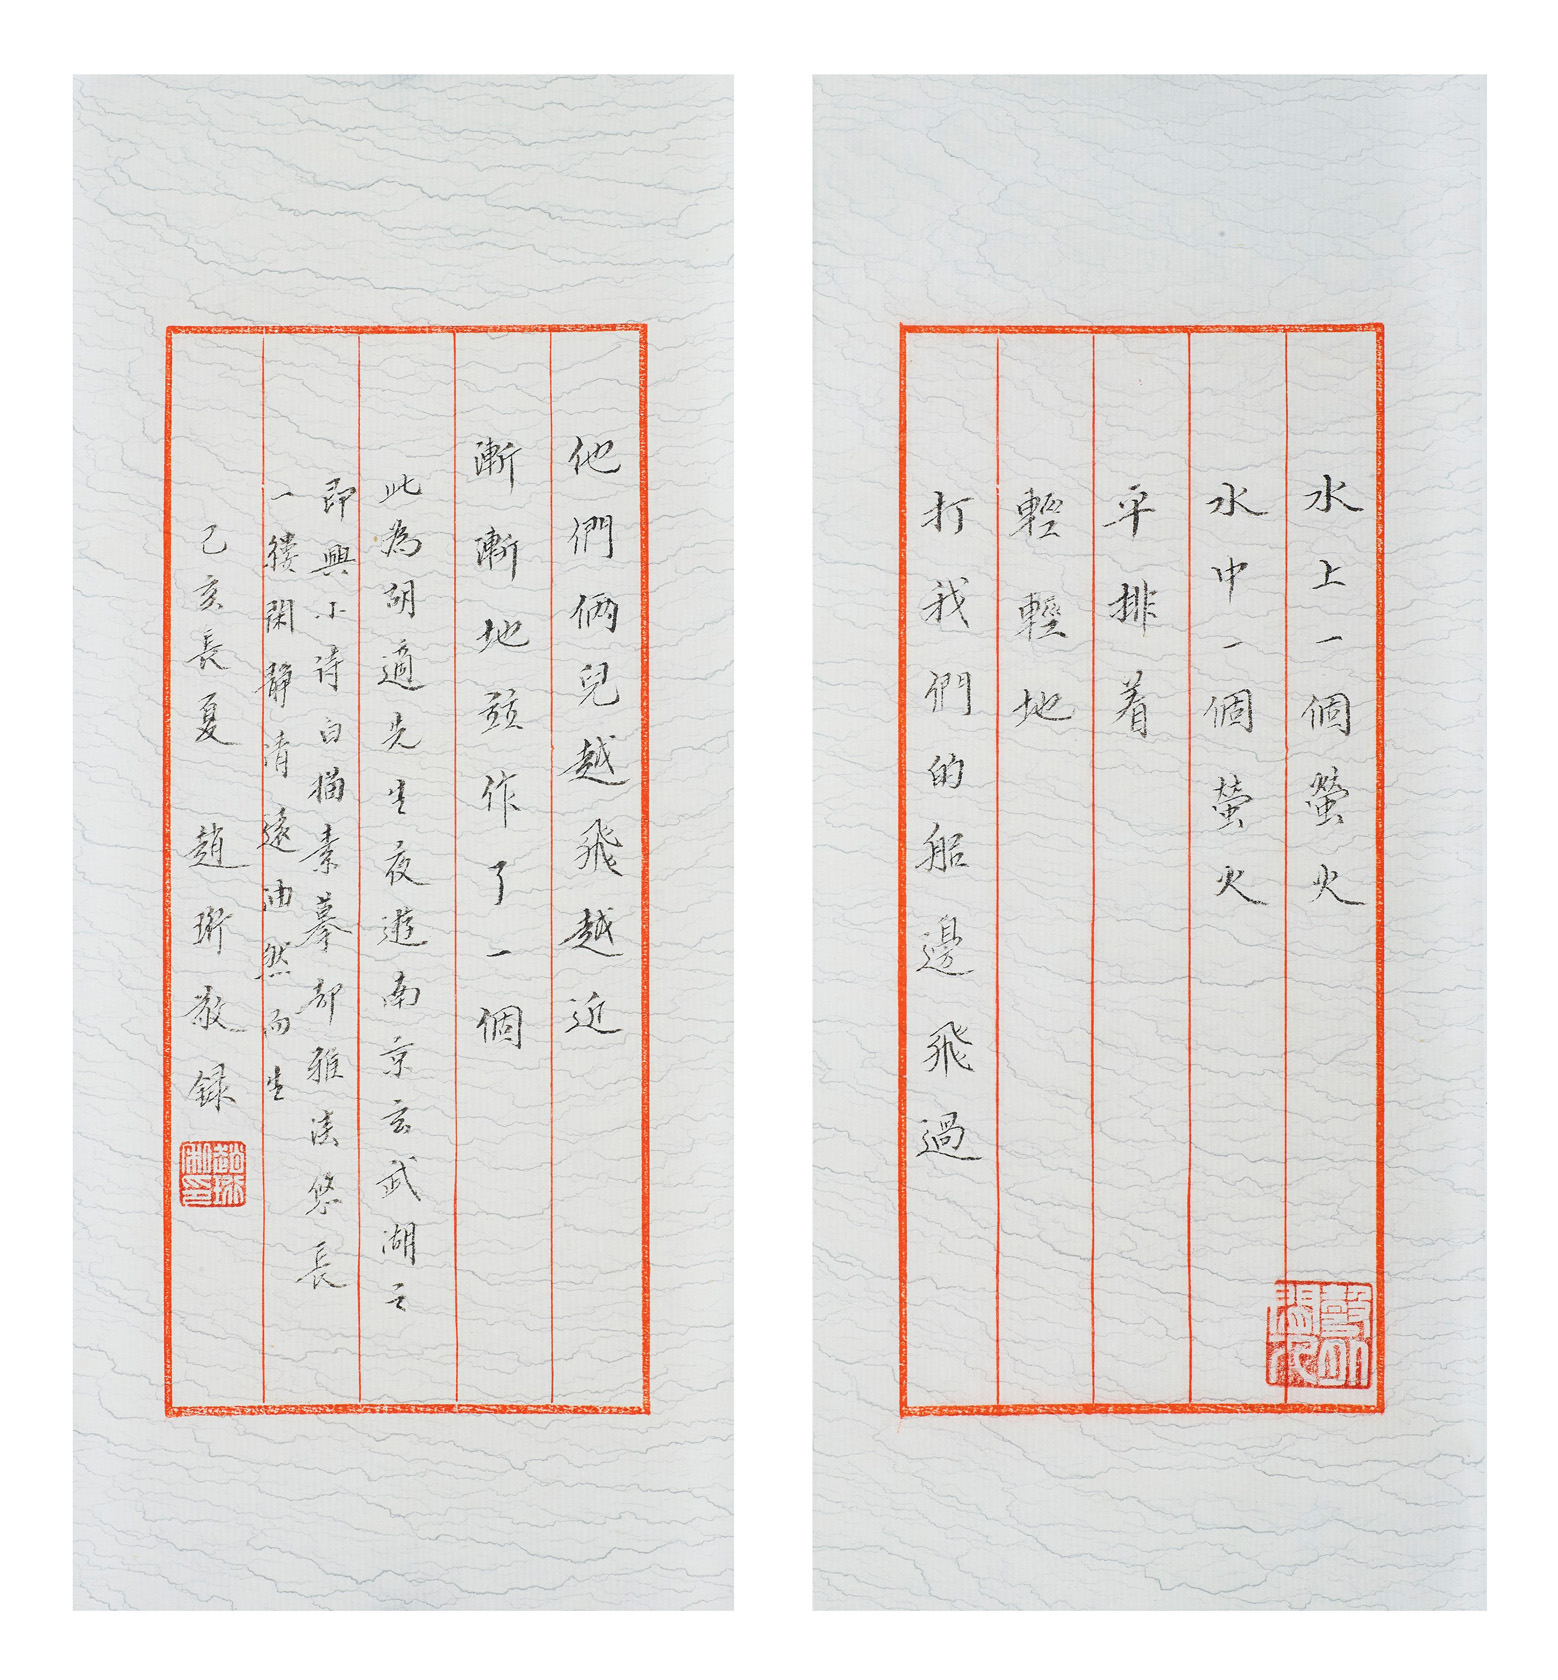 水上一個螢火
水中一個螢火
平排着
輕輕地
打我們的船邊飛過
他們倆兒越飛越近
漸漸地並作了一個
此為胡適先生夜遊南京玄武湖之
即興小诗白描素摹却雅淡悠長
一縷閑靜清遠油然而生
己亥長夏 趙珩敬録